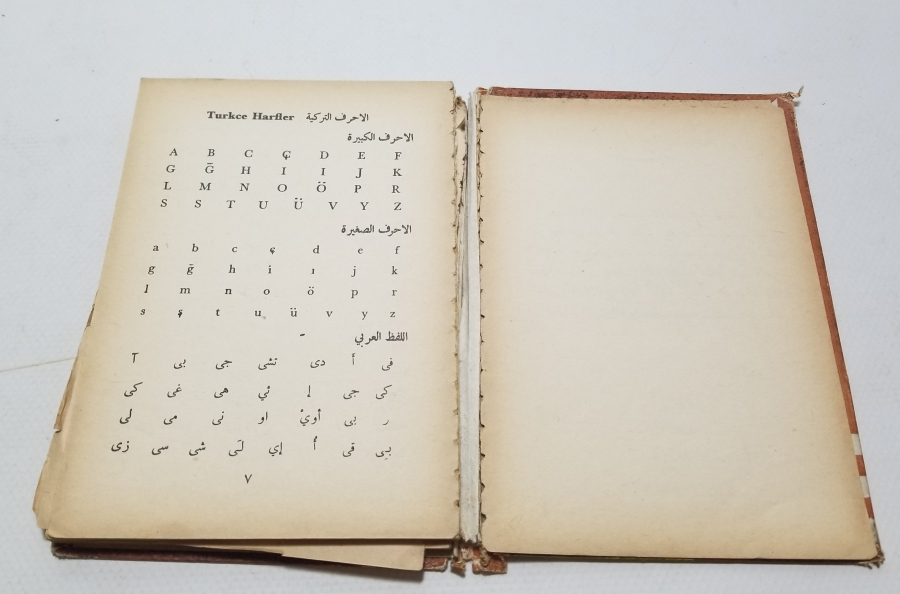 Turkce Harfler الاحرف التركية
الاحرف الكبيرة
A B C Ç D E F
G Ğ H I I J K
L M N O Ö P R
S S T U Ü V Y Z
الاحرف الصغيرة
a b c ç d e f
g ğ h i ı j k
l m n o ö p r
s ş t u ü v y z
اللفظ العربي
فى أ دى تشى جى بى آ
كى جى إ ئي هى غى كى
ر بى أويْ او نى مى لى
يى فى أُ إي تى شى سى زى
٧